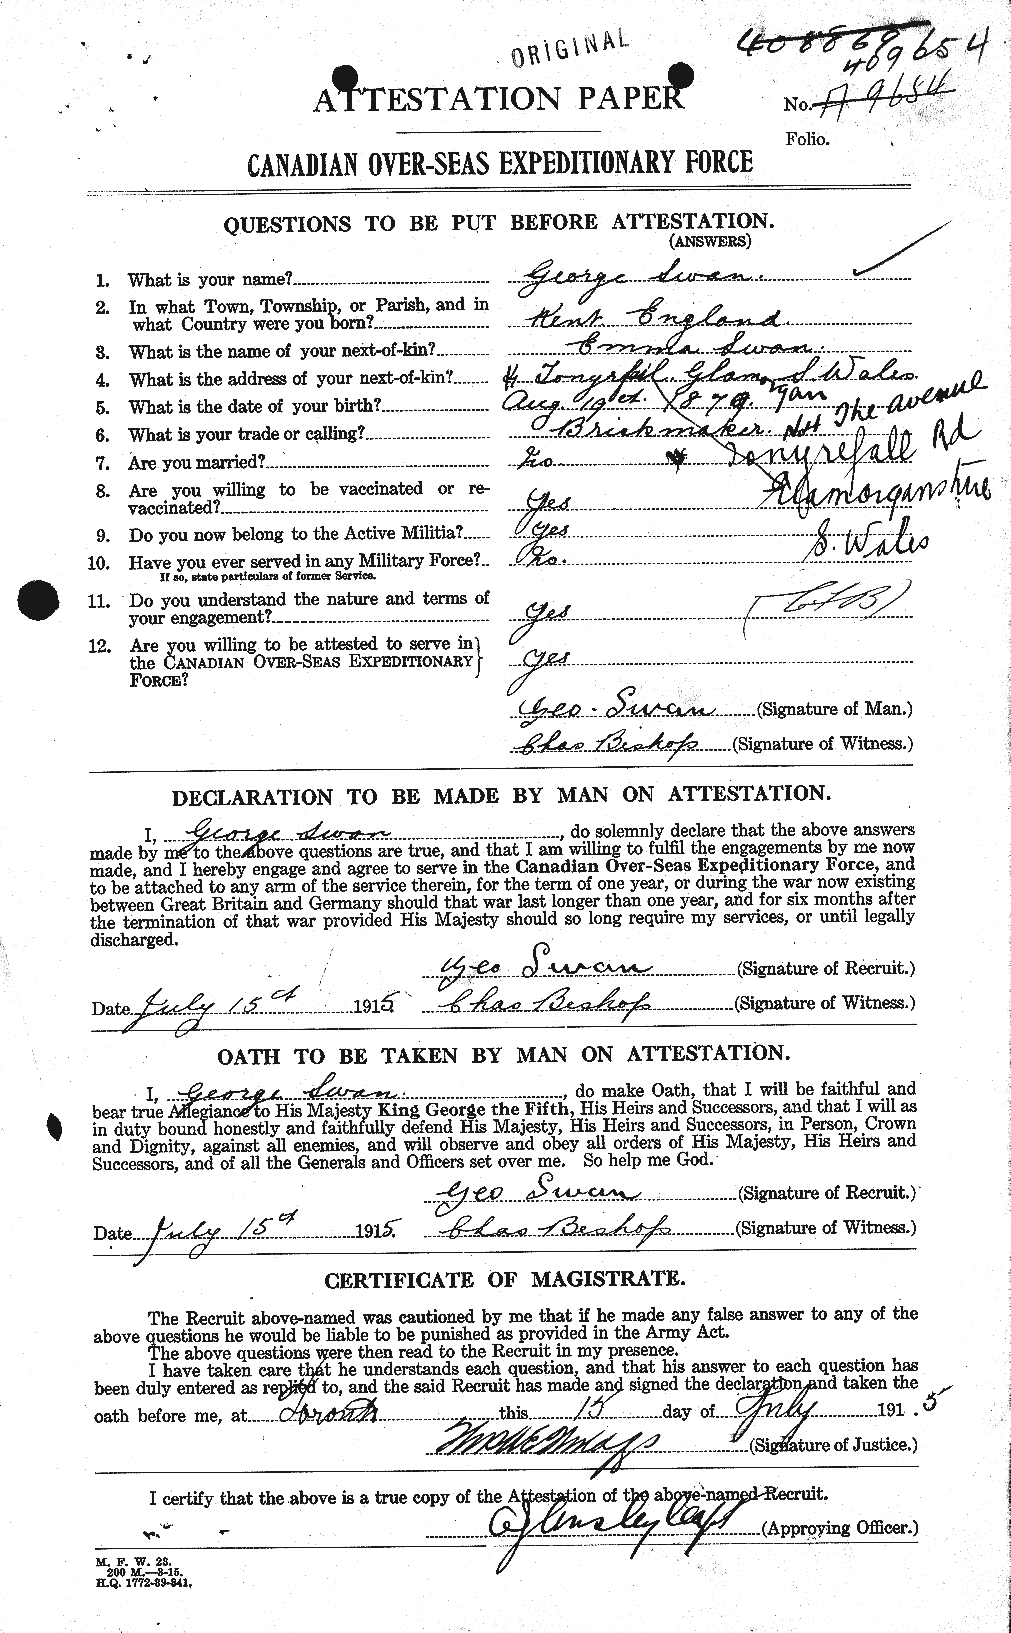 ORIGINAL
408869
409654
ATTESTATION PAPER
No. A 9654
Folio.
CANADIAN OVER-SEAS EXPEDITIONARY FORCE
QUESTIONS TO BE PUT BEFORE ATTESTATION.
(ANSWERS)
1. What is your name? George Swan.
2. In what Town, Township, or Parish, and in
what Country were you born? Kent England
3. What is the name of your next-of-kin? Emma Swan.
4. What is the address of your next-of-kin? Glamorgan Wales
5. What is the date of your birth? Aug 19th. 1879
The Avenue
6. What is your trade or calling? Brickmaker.
7. Are you married? No
Tonyrefail Rd
8. Are you willing to be vaccinated or re-
vaccinated? Yes
Glamorganshire
9. Do you now belong to the Active Militia? Yes
S. Wales
10. Have you ever served in any Military Force? No.
If so, state particulars of former Service.
11. Do you understand the nature and terms of
your engagement? Yes
12. Are you willing to be attested to serve in
the CANADIAN OVER-SEAS EXPEDITIONARY
FORCE? Yes
Geo. Swan (Signature of Man.)
Chas Bishop (Signature of Witness.)
DECLARATION TO BE MADE BY MAN ON ATTESTATION.
I, George Swan, do solemnly declare that the above answers
made by me to the above questions are true, and that I am willing to fulfil the engagements by me now
made, and I hereby engage and agree to serve in the Canadian Over-Seas Expeditionary Force, and
to be attached to any arm of the service therein, for the term of one year, or during the war now existing
between Great Britain and Germany should that war last longer than one year, and for six months after
the termination of that war provided His Majesty should so long require my services, or until legally
discharged.
Geo Swan (Signature of Recruit.)
Date July 15th 1915 Chas Bishop (Signature of Witness.)
OATH TO BE TAKEN BY MAN ON ATTESTATION.
I, George Swan, do make Oath, that I will be faithful and
bear true Allegiance to His Majesty King George the Fifth, His Heirs and Successors, and that I will as
in duty bound honestly and faithfully defend His Majesty, His Heirs and Successors, in Person, Crown
and Dignity, against all enemies, and will observe and obey all orders of His Majesty, His Heirs and
Successors, and of all the Generals and Officers set over me. So help me God.
Geo Swan (Signature of Recruit.)
Date July 15th 1915. Chas Bishop (Signature of Witness.)
CERTIFICATE OF MAGISTRATE.
The Recruit above-named was cautioned by me that if he made any false answer to any of the
above questions he would be liable to be punished as provided in the Army Act.
The above questions were then read to the Recruit in my presence.
I have taken care that he understands each question, and that his answer to each question has
been duly entered as replied to, and the said Recruit has made and signed the declaration and taken the
oath before me, at Toronto this 15 day of July 191.5
(Signature of Justice.)
I certify that the above is a true copy of the Attestation of the above-named Recruit.
(Approving Officer.)
M. F. W. 23.
200 M.—3-15.
H.Q. 1772-39-841.